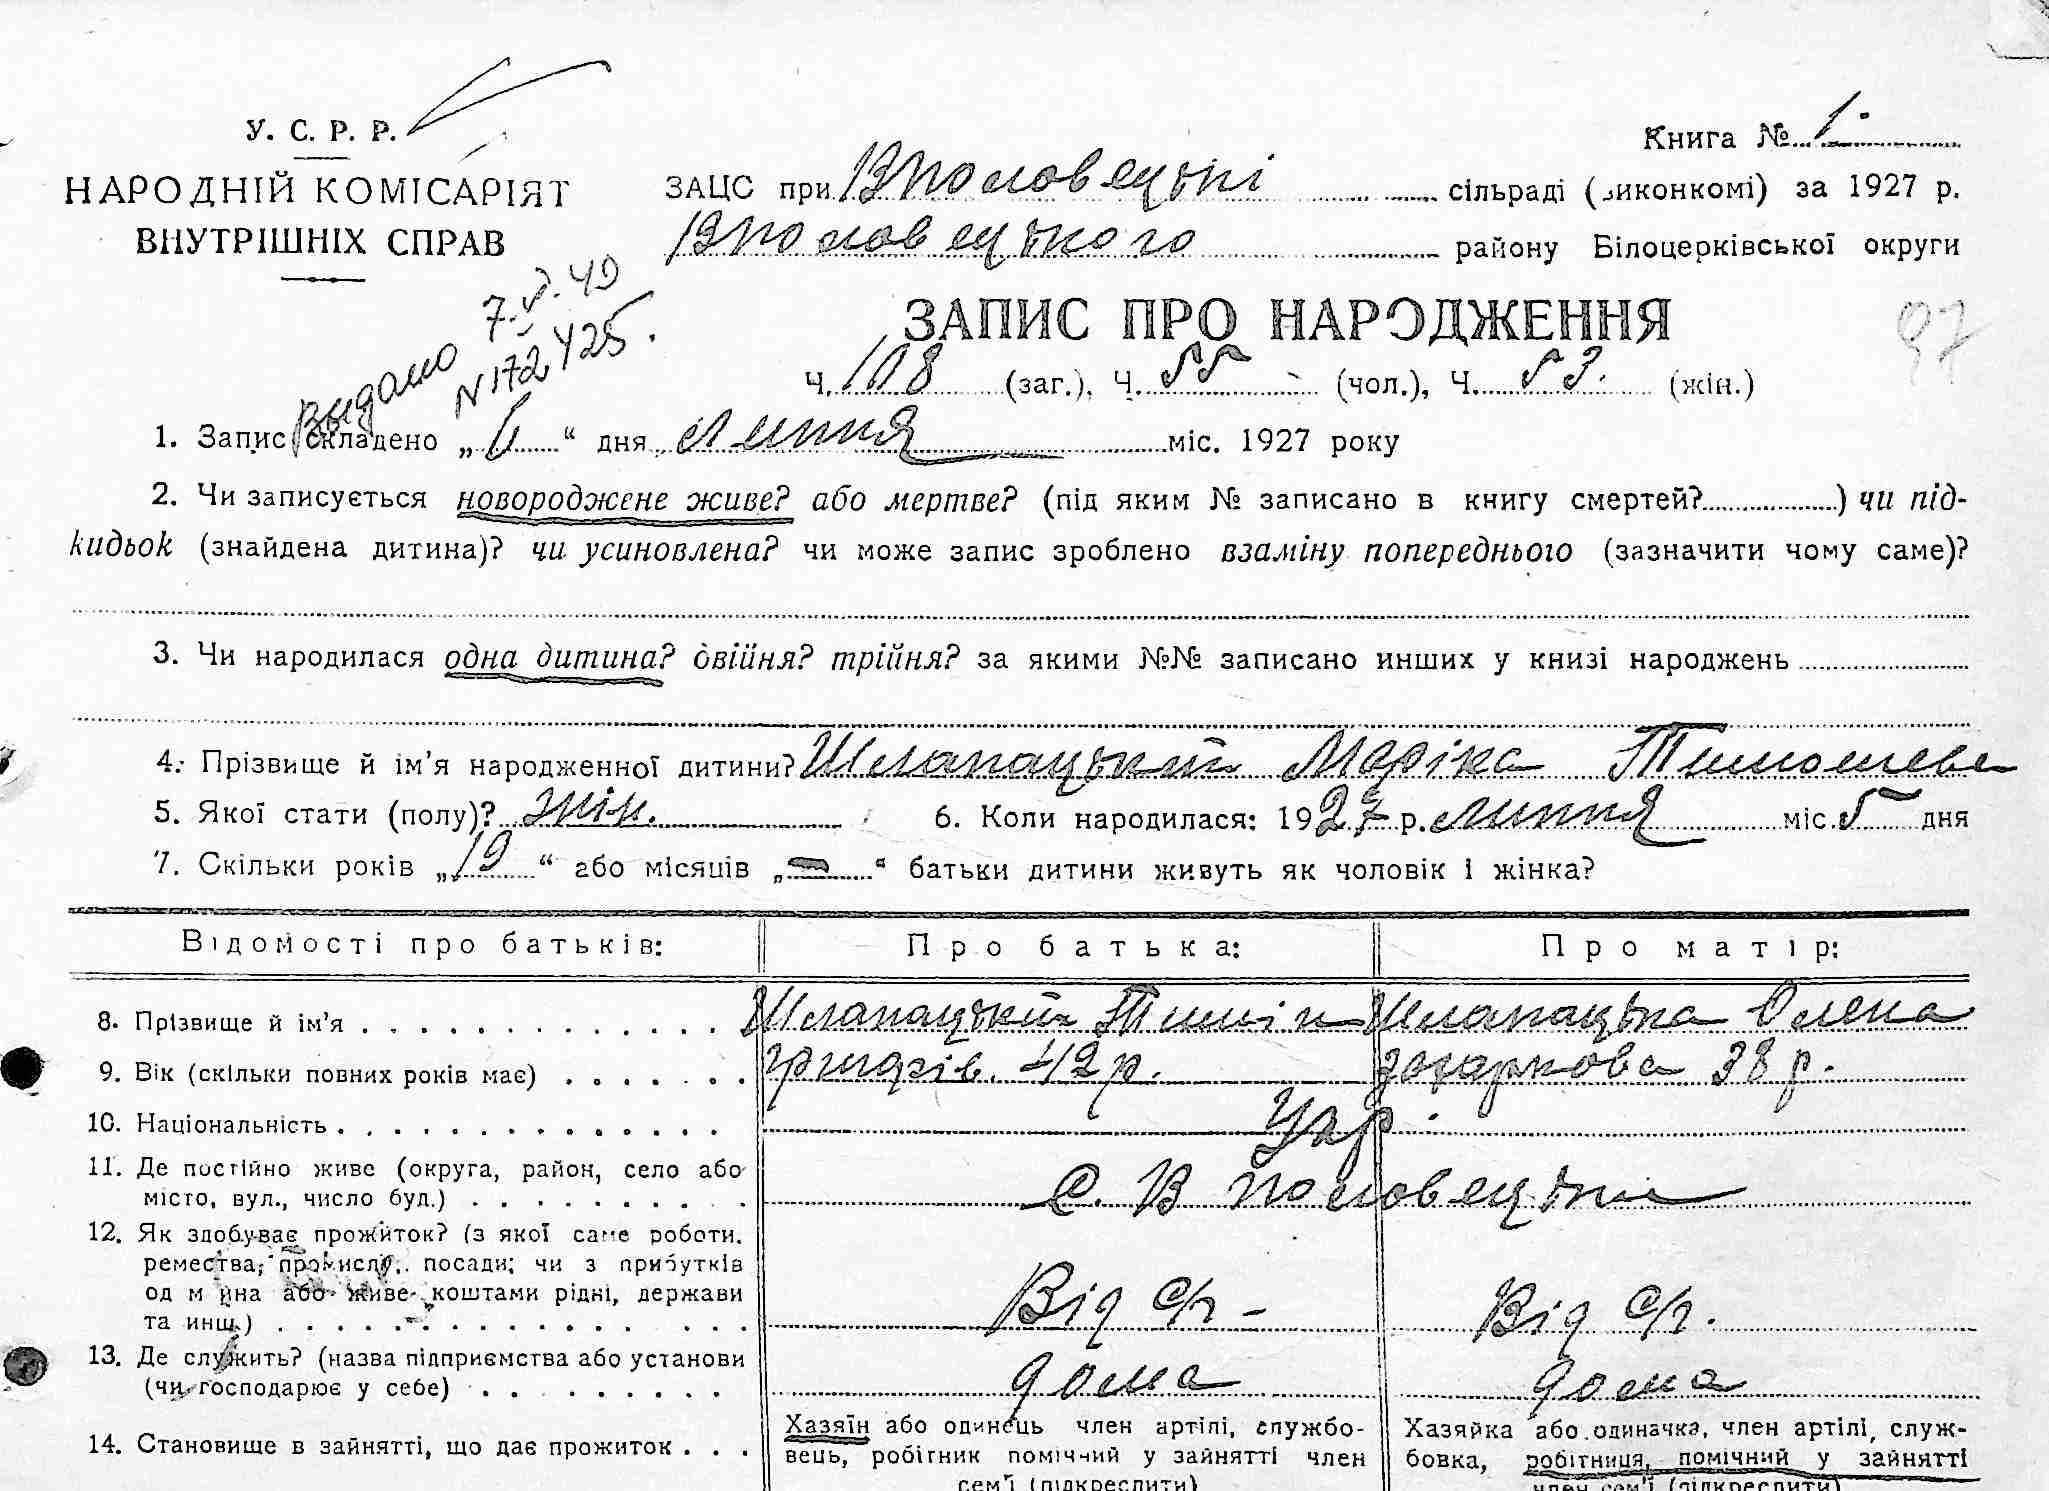 У. С. Р. Р.
НАРОДНІЙ КОМІСАРІЯТ
ВНУТРІШНІХ СПРАВ
Книга № 1
ЗАЦС при ВПоловецькі сільраді (виконкомі) за 1927 р.
ВПоловецького району Білоцерківської округи
видано 7.VI.49
N 172425.
ЗАПИС ПРО НАРОДЖЕННЯ
97
Ч. 108 (заг.), Ч. 55 (чол.), Ч. 53. (жін.)
1. Запис складено „ 6 “ дня липня міс. 1927 року
2. Чи записується новороджене живе? або мертве? (під яким № записано в книгу смертей? ) чи під-
кидьок (знайдена дитина)? чи усиновлена? чи може запис зроблено взаміну попереднього (зазначити чому саме)?
3. Чи народилася одна дитина? двійня? трійня? за якими №№ записано инших у книзі народжень
4. Прізвище й ім’я народженної дитини? Шлапацький Марійка Тимошева
5. Якої стати (полу)? жін. 6. Коли народилася: 1927 р. липня міс. 5 дня
7. Скільки років „ 19 “ або місяців „ — “ батьки дитини живуть як чоловік і жінка?
Відомості про батьків: Про батька: Про матір:
8. Прізвище й ім’я . . . . . . . . . . . . . Шлапацький Тиміш Шлапацька Олена
9. Вік (скільки повних років має) . . . . . . . григорів. 42 р. захаркова 38 р.
10. Національність . . . . . . . . . . . . . . Укр.
11. Де постійно живе (округа, район, село або
місто, вул., число буд.) . . . . . . . . . . С. В Половецьке
12. Як здобуває прожиток? (з якої саме роботи,
ремества, промислу, посади; чи з прибутків
од майна або живе коштами рідні, держави
та инш.) . . . . . . . . . . . . . . . Від с/г - Від с/г.
13. Де служить? (назва підприємства або установи
(чи господарює у себе) . . . . . . . . . дома дома
14. Становище в зайнятті, що дає прожиток . . .
Хазяїн або одинець член артілі, службо-
вець, робітник помічний у зайнятті член
сем’ї (підкреслити)
Хазяйка або одиначка, член артілі, служ-
бовка, робітниця, помічний у зайнятті
член сем’ї (підкреслити)